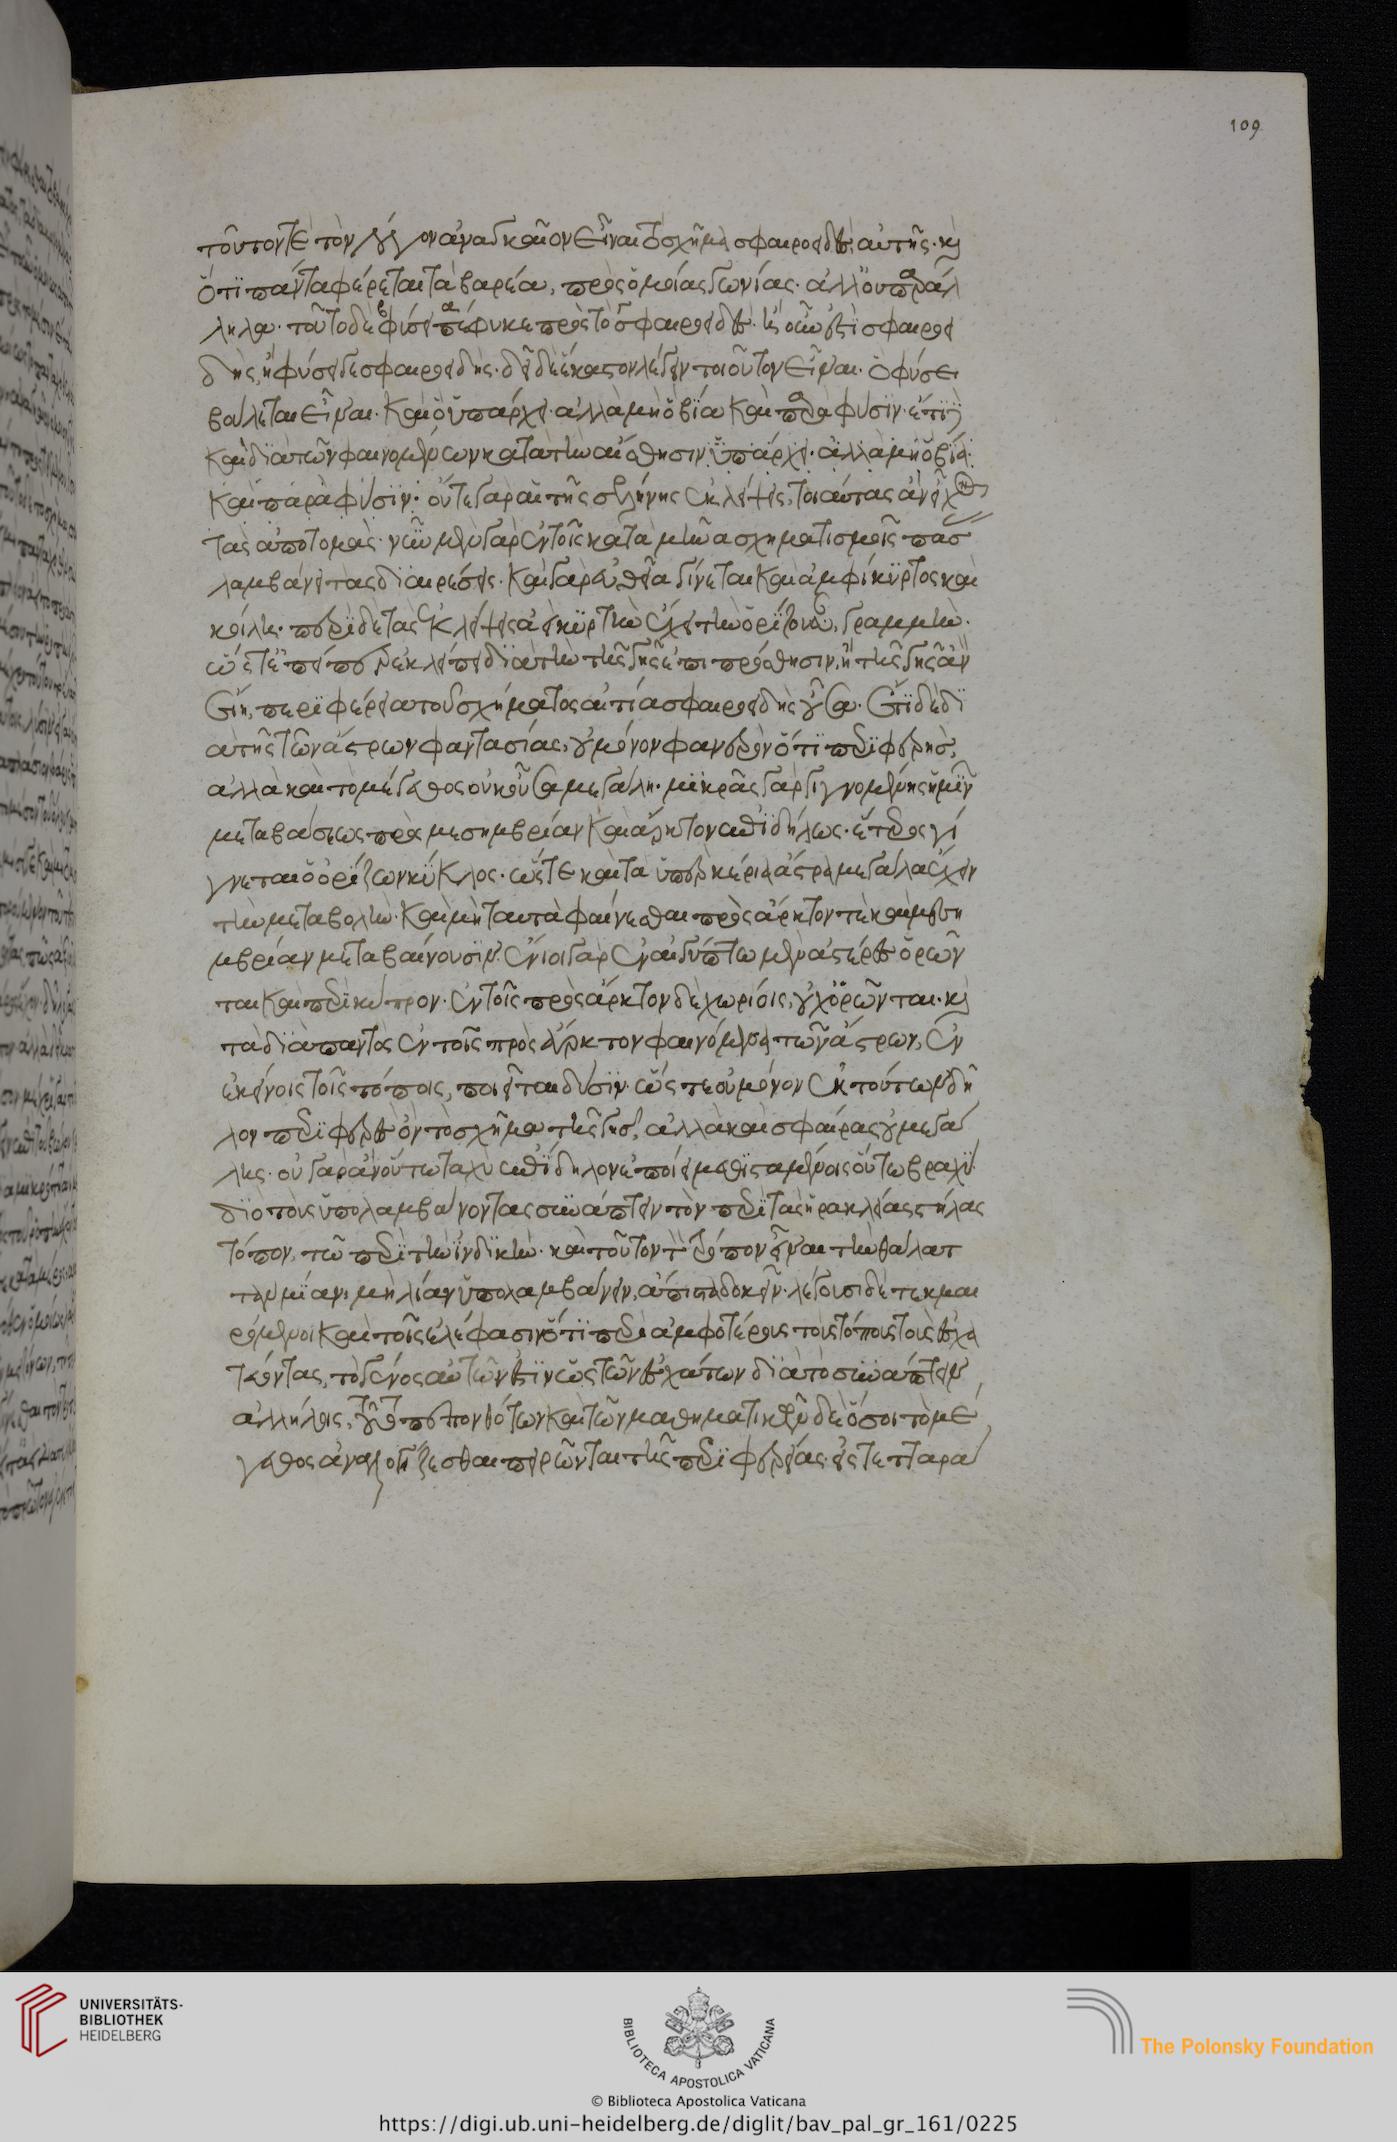 τοῦτόν τε τὸν λόγον ἀναγκαῖον εἶναι τὸ σχῆμα σφαιροειδὲς αὐτῆς· καὶ
ὅτι πάντα φέρεται τὰ βαρέα, πρὸς ὁμοίας γωνίας· ἀλλ' οὐ παράλ
ληλα· τοῦτο δὲ φύσει πέφυκε πρὸς τὸ σφαιροειδές· ἢ οὖν ἐστὶ σφαιροει
δής, ἢ φύσει γε σφαιροειδής· δεῖ δὲ ἕκαστον λέγειν τοιοῦτον εἶναι· ὃ φύσει
βούλεται εἶναι· καὶ ὃ ὑπάρχει· ἀλλὰ μὴ ὃ βίᾳ καὶ παρὰ φύσιν· ἔτι δὲ
καὶ διὰ τῶν φαινομένων κατὰ τὴν αἴσθησιν ὑπάρχει· ἀλλὰ μὴ ὃ βίᾳ
καὶ παρὰ φύσιν· οὔτε γὰρ αἱ τῆς σελήνης ἐκλείψεις, τοιαύτας ἂν εἶχον
τὰς ἀποτομάς· νῦν μὲν γὰρ ἐν τοῖς κατὰ μῆνα σχηματισμοῖς πάσ
λαμβάνει τὰς διαιρέσεις· καὶ γὰρ εὐθεῖα γίνεται καὶ ἀμφίκυρτος καὶ
κοίλη· περὶ δὲ τὰς ἐκλείψεις ἀεὶ κυρτὴν ἔχει τὴν ὁρίζουσαν γραμμήν·
ὥστ' ἐπείπερ ἐκλείπει διὰ τὴν τῆς γῆς ἐπιπρόσθησιν, ἡ τῆς γῆς ἂν
εἴη, περιφέρεια τοῦ σχήματος αἰτία σφαιροειδὴς οὖσα· ἔτι δὲ δι
ὰ τῆς τῶν ἄστρων φαντασίας, οὐ μόνον φανερὸν ὅτι περιφερής,
ἀλλὰ καὶ τὸ μέγεθος οὐκ οὖσα μεγάλη· μικρᾶς γὰρ γιγνομένης ἡμῖν
μεταβάσεως πρὸς μεσημβρίαν καὶ ἄρκτον ἐπιδήλως· ἕτερος γί
γνεται ὁ ὁρίζων κύκλος· ὥστε καὶ τὰ ὑπὲρ κεφαλῆς ἄστρα μεγάλα ἔχειν
τὴν μεταβολήν· καὶ μὴ ταυτὰ φαίνεσθαι πρὸς ἄρκτον τὲ καὶ μεση
μβρίαν μεταβαίνουσιν· ἔνιοι γὰρ ἐν αἰγύπτω μὲν ἀστέρες ὁρῶν
ται καὶ περὶ κύπρον· ἐν τοῖς πρὸς ἄρκτον δὲ χωρίοις, οὐχ ὁρῶνται· καὶ
τὰ διὰ παντὸς ἐν τοῖς πρὸς ἄρκτον φαινόμενα τῶν ἄστρων, ἐν
ἐκείνοις τοῖς τόποις, ποιεῖται δύσιν· ὥστε οὐ μόνον ἐκ τούτων δῆ
λον περιφερὲς ὂν τὸ σχῆμα τῆς γῆς, ἀλλὰ καὶ σφαίρας οὐ μεγά
λης· οὐ γὰρ ἂν οὕτω ταχὺ ἐπίδηλον ἐποίει μεθισταμένοις οὕτω βραχύ·
διὸ τοὺς ὑπολαμβάνοντας συνάπτειν τὸν περὶ τὰς ἡρακλείας στήλας
τόπον, τῷ περὶ τὴν ἰνδικήν· καὶ τοῦτον τὸν τρόπον εἶναι τὴν θάλατ
ταν μίαν, μὴ λίαν ὑπολαμβάνειν, ἄπιστα δοκεῖν· λέγουσι δὲ τεκμαι
ρόμενοι καὶ τοῖς ἐλέφασιν ὅτι περὶ ἀμφοτέρους τοὺς τόπους τοὺς ἐσχα
τεύοντας, τὸ γένος αὐτῶν ἐστὶν ὡς τῶν ἐσχάτων διὰ τὸ συνάπτειν
ἀλλήλοις, τοῦτο πεπονθότων καὶ τῶν μαθηματικῶν δὲ ὅσοι τὸ μέ
γεθος ἀναλογίζεσθαι πειρῶνται τῆς περιφερείας· εἰς τετταρά
109
UNIVERSITÄTS-
BIBLIOTHEK
HEIDELBERG
BIBLIOTECA APOSTOLICA VATICANA
The Polonsky Foundation
© Biblioteca Apostolica Vaticana
https://digi.ub.uni-heidelberg.de/diglit/bav_pal_gr_161/0225